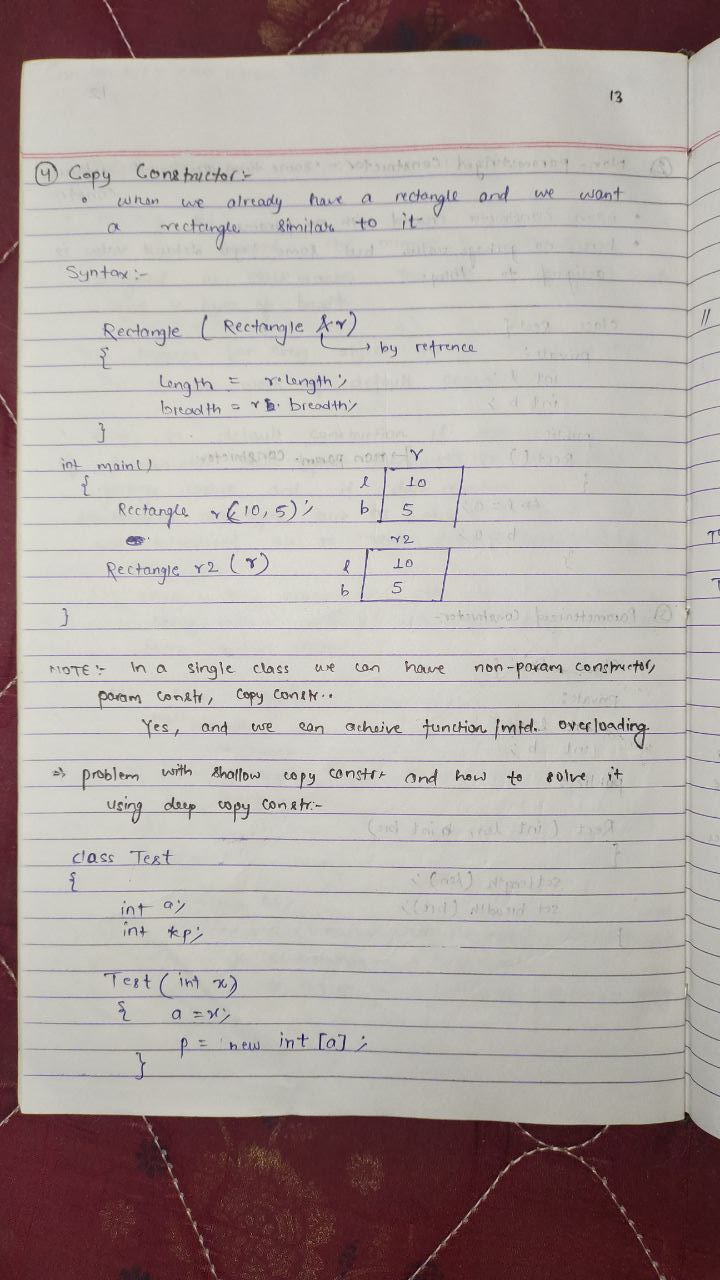 13
(4) Copy Constructor:-
• when we already have a rectangle and we want
a rectangle similar to it
Syntax:-
Rectangle ( Rectangle &r)
→ by refrence
{
length = r.length;
breadth = r. breadth;
}
int main()
{
r
l 10
Rectangle r(10, 5);
b 5
r2
Rectangle r2 (r)
l 10
b 5
}
NOTE:- In a single class we can have non-param constructor,
param constr, copy constr..
Yes, and we can acheive function/mtd. overloading.
⇒ problem with shallow copy constr and how to solve it
using deep copy constr:-
class Test
{
int a;
int *p;
Test ( int x)
{ a = x;
p = new int [a] ;
}
//